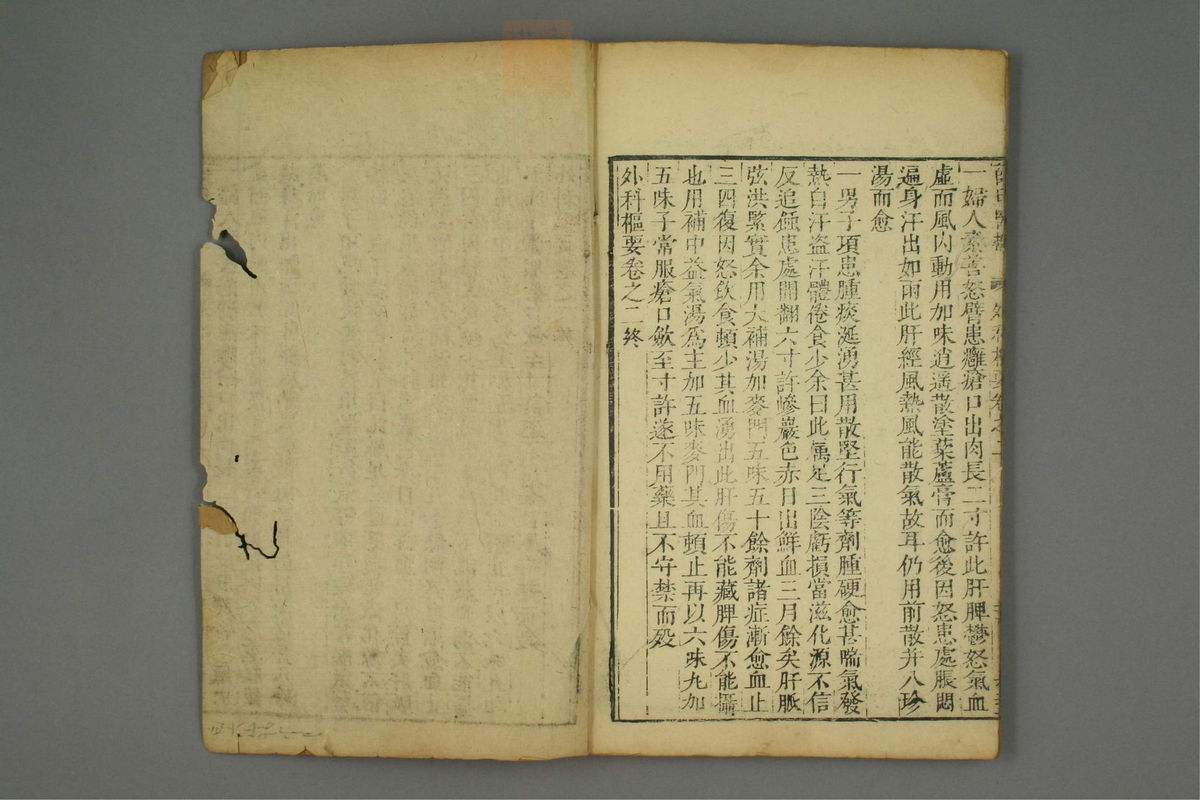 一婦人素善怒臂患癰瘡口出肉長二寸許此肝脾鬱怒氣血
虛而風內動用加味逍遙散塗藜蘆膏而愈後因怒患處脹悶
遍身汗出如雨此肝經風熱風能散氣故耳仍用前散并八珍
湯而愈
一男子項患腫痰涎湧甚用散堅行氣等劑腫硬愈甚喘氣發
熱自汗盜汗體倦食少余曰此屬足三陰虧損當滋化源不信
反追蝕患處開翻六寸許巉巖色赤日出鮮血三月餘矣肝脈
弦洪緊實余用大補湯加麥門五味五十餘劑諸症漸愈血止
三四復因怒飲食頓少其血湧出此肝傷不能藏脾傷不能攝
也用補中益氣湯爲主加五味麥門其血頓止再以六味丸加
五味子常服瘡口歛至寸許遂不用藥且不守禁而歿
外科樞要卷之二終